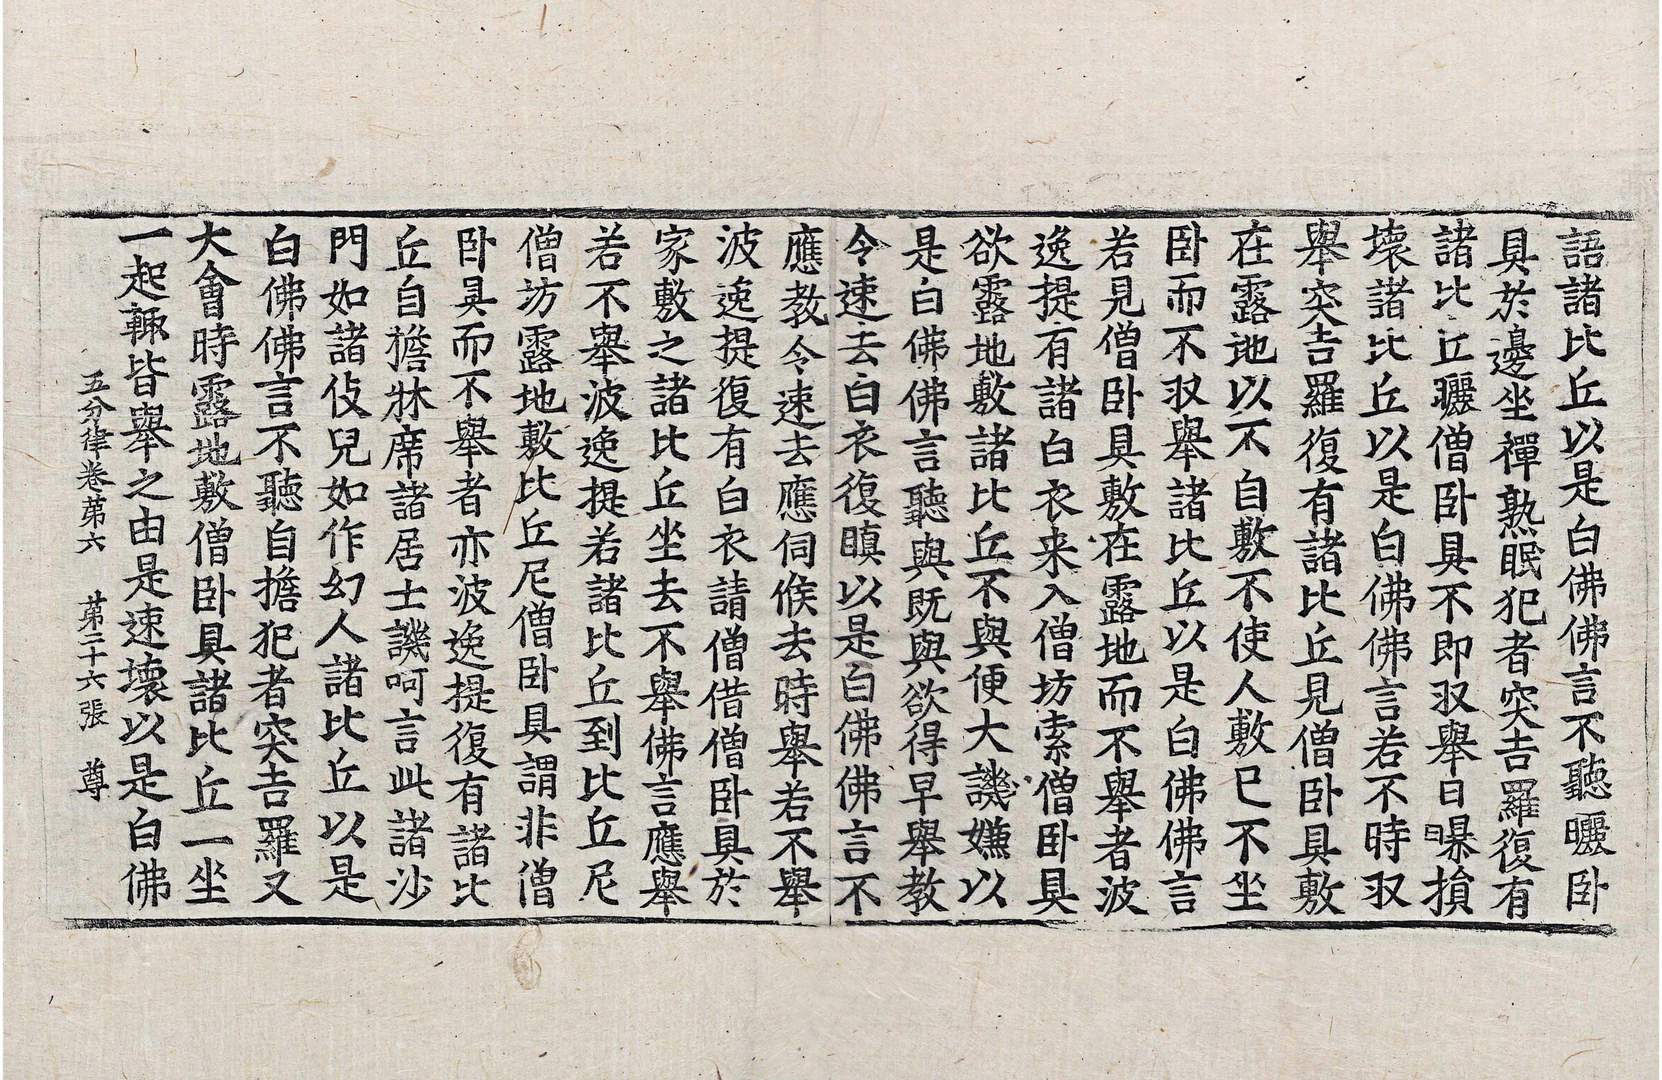 語諸比丘以是白佛佛言不聽曬卧
具於邊坐禪熟眠犯者突吉羅復有
諸比丘曬僧卧具不即収舉日曝損
壞諸比丘以是白佛佛言若不時収
舉突吉羅復有諸比丘見僧卧具敷
在露地以不自敷不使人敷已不坐
卧而不収舉諸比丘以是白佛佛言
若見僧卧具敷在露地而不舉者波
逸提有諸白衣来入僧坊索僧卧具
欲露地敷諸比丘不與便大譏嫌以
是白佛佛言聽與既與欲得早舉教
令速去白衣復瞋以是白佛佛言不
應教令速去應伺候去時舉若不舉
波逸提復有白衣請僧借僧卧具於
家敷之諸比丘坐去不舉佛言應舉
若不舉波逸提若諸比丘到比丘尼
僧坊露地敷比丘尼僧卧具謂非僧
卧具而不舉者亦波逸提復有諸比
丘自擔牀席諸居士譏呵言此諸沙
門如諸伎兒如作幻人諸比丘以是
白佛佛言不聽自擔犯者突吉羅又
大會時露地敷僧卧具諸比丘一坐
一起輙皆舉之由是速壞以是白佛
五分律卷苐六 苐二十六張 尊